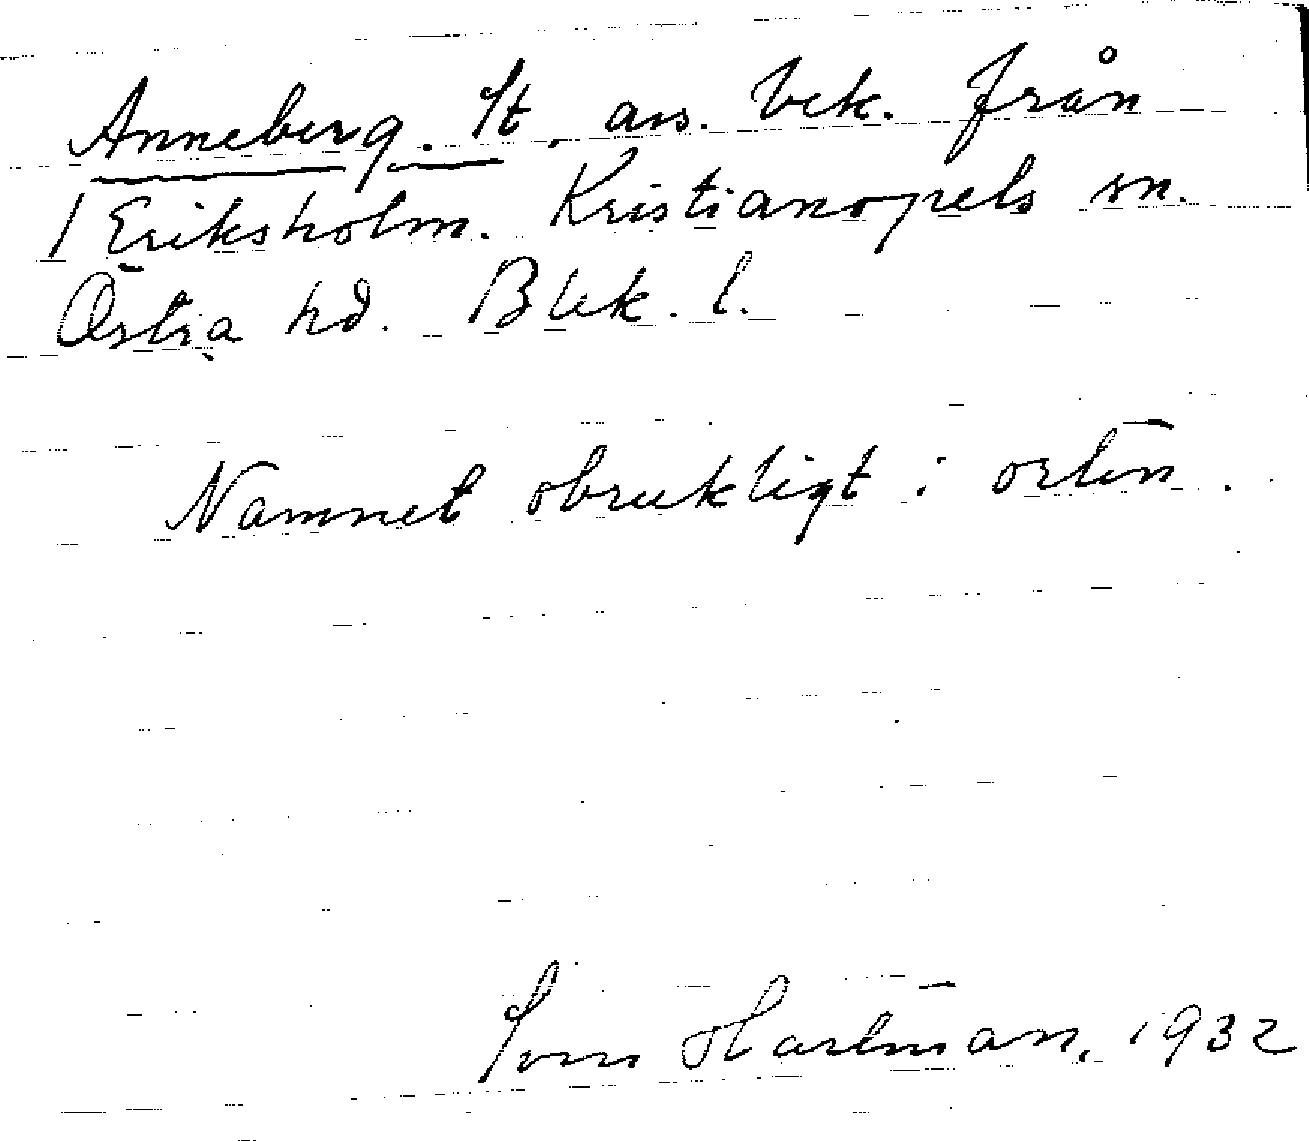 Anneberg. St. avs. bek. från
1 Eriksholm. Kristianopels sn.
Östra hd. Blek. l.
Namnet obrukligt i orten.
Sven Hartman, 1932